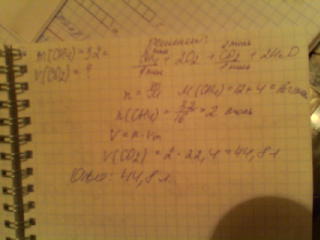 Решение:
m(CH₄) = 32 г
2 моль 2 моль
CH₄ + 2O₂ → CO₂ + 2H₂O
V(CO₂) = ?
1 моль 1 моль
n = m/M M(CH₄) = 12 + 4 = 16 г/моль
n(CH₄) = 32/16 = 2 моль
V = n · Vm
V(CO₂) = 2 · 22,4 = 44,8 л
Ответ: 44,8 л.